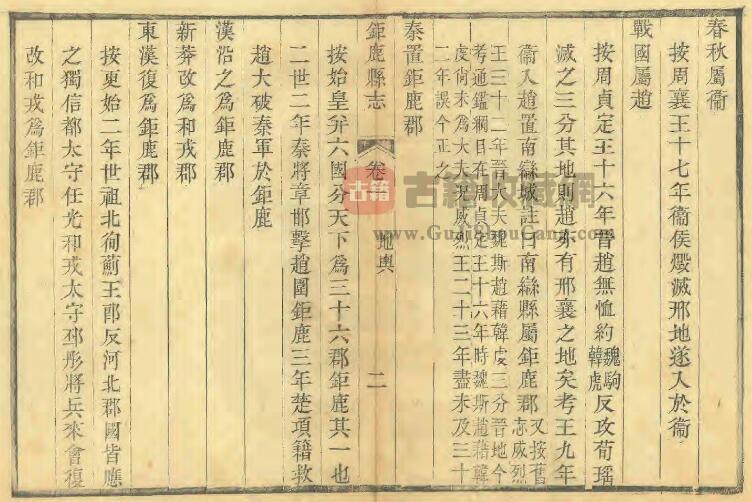 春秋屬衞
按周襄王十七年衞侯燬滅邢地遂入於衞
戰國屬趙
按周貞定王十六年晉趙無恤約魏駒韓虎反攻荀瑤
滅之三分其地則趙亦有邢襄之地矣考王九年
衞入趙置南䜌城註曰南䜌縣屬鉅鹿郡又按舊志威烈
王三十二年晉大夫魏斯趙藉韓虔三分晉地今
考通鑑綱目在周貞定王十六年時魏斯趙藉韓
虔尚未為大夫况威烈王二十三年盡未及三十
二年誤今正之
秦置鉅鹿郡
鉅鹿縣志 卷一 地輿 二
按始皇并六國分天下爲三十六郡鉅鹿其一也
二世二年秦將章邯擊趙圍鉅鹿三年楚項籍救
趙大破秦軍於鉅鹿
漢沿之爲鉅鹿郡
新莽改爲和戎郡
東漢復爲鉅鹿郡
按更始二年世祖北徇薊王郎反河北郡國皆應
之獨信都太守任光和戎太守邳彤將兵來會復
改和戎爲鉅鹿郡
古籍
古籍收藏网
www.GuJiShouCang.com